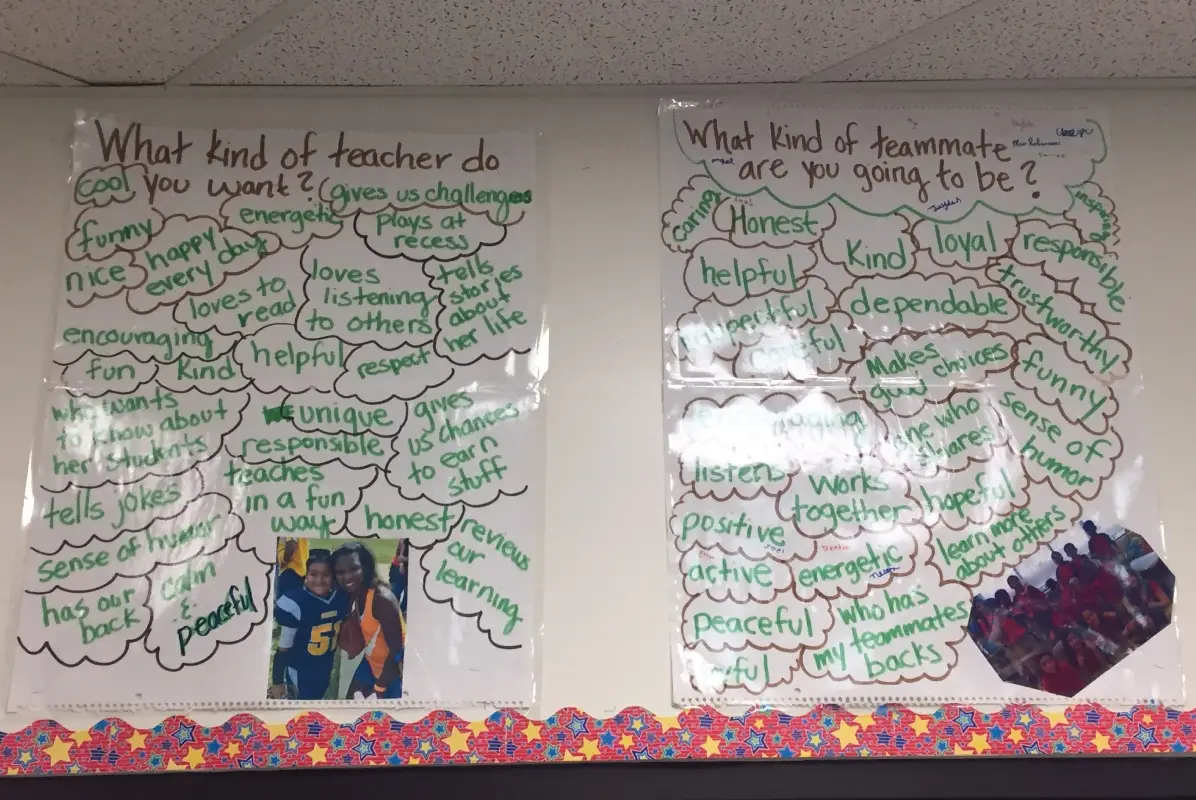 What kind of teacher do
you want?
cool
gives us challenges
energetic
plays at
recess
funny
happy
every day
nice
loves to
read
loves
listening
to others
tells
stories
about
her life
encouraging
fun
kind
helpful
respect
who wants
to know about
her students
unique
responsible
gives
us chances
to earn
stuff
tells jokes
teaches
in a fun
way
honest
reviews
our
learning
sense of humor
has our
back
calm
&
peaceful
51
What kind of teammate
are you going to be?
caring
Honest
Kind
loyal
responsible
inspiring
helpful
dependable
trustworthy
Makes
good choices
funny
one who
shares
sense of
humor
listens
works
together
hopeful
positive
learn more
about others
active
energetic
peaceful
who has
my teammates
backs
Jayden
Joel
Trenton